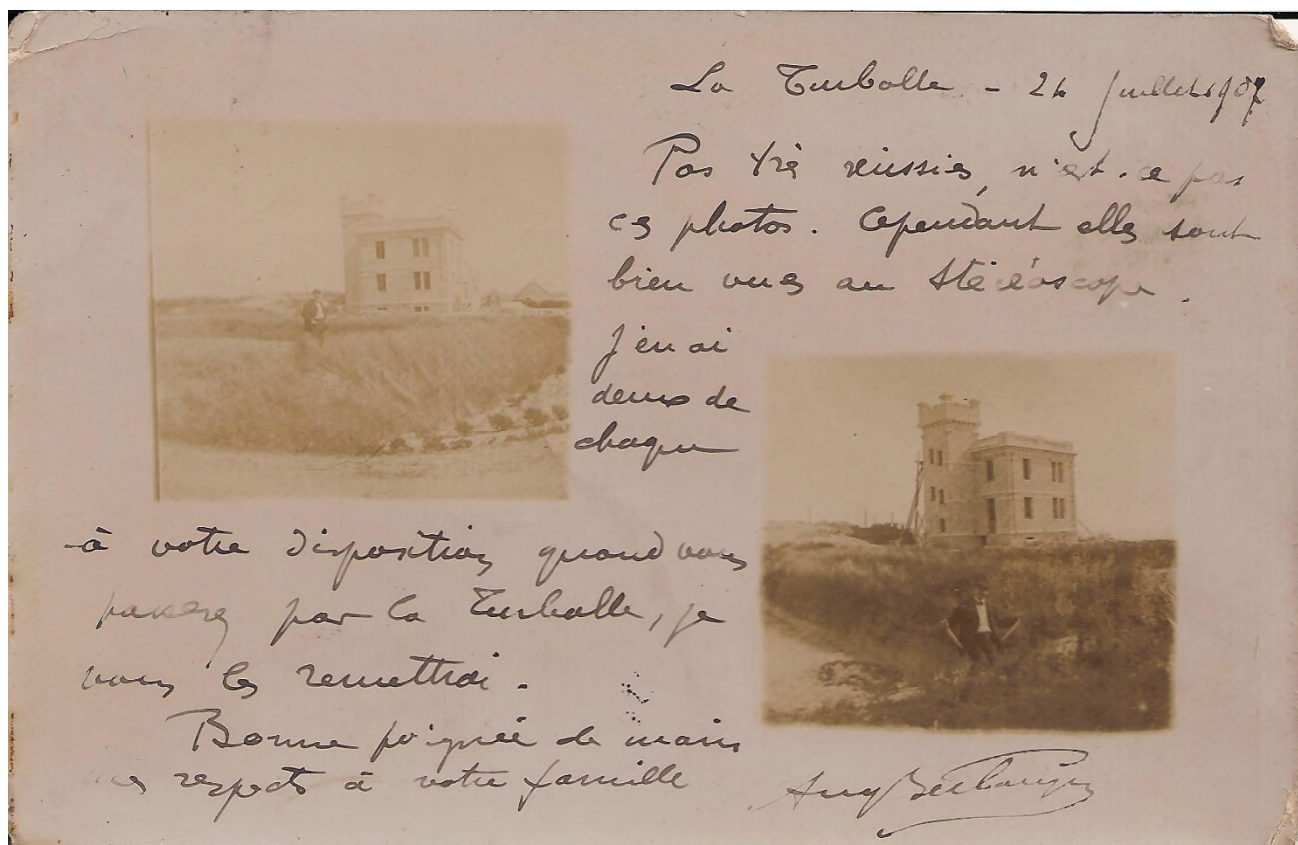 La Turballe - 24 juillet 1907
Pas très réussies, n'est-ce pas
ces photos. Cependant elles sont
bien vues au stéréoscope.
J'en ai
deux de
chaque
à votre disposition quand vous
passerez par la Turballe, je
vous les remettrai.
Bonne poignée de main
mes respects à votre famille
Aug